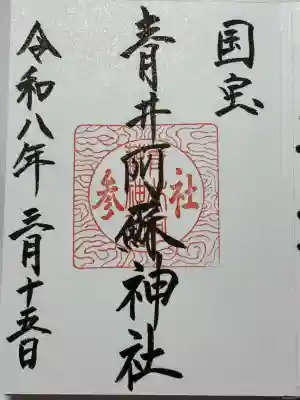 国宝
青井阿蘇神社
令和八年 三月十五日
参社